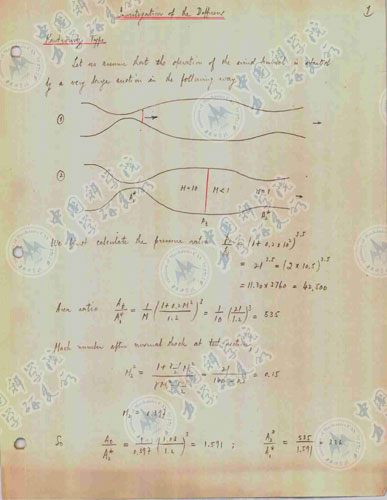 Investigation of the Diffuser
1
Hartford Type
Let us assume that the operation of the wind tunnel is started
by a very large suction in the following way
①
②
M=10 M<1 M=1
A₁* A₂ A₂*
We first calculate the pressure ratio = (1+0.2×10²)^3.5
= 21^3.5 = (2×10.5)^3.5
= 11.30×3760 = 42,500
Area ratio A₂/A₁* = 1/M ((1+0.2M²)/1.2)³ = 1/10 (21/1.2)³ = 535
Mach number after normal shock at test section
M₂² = = 21/ = 0.15
M₂ = 0.397
So A₂/A₂* = 1/0.397 (1.03/1.2)³ = 1.591 ; A₂*/A₁* = 535/1.591 = 336